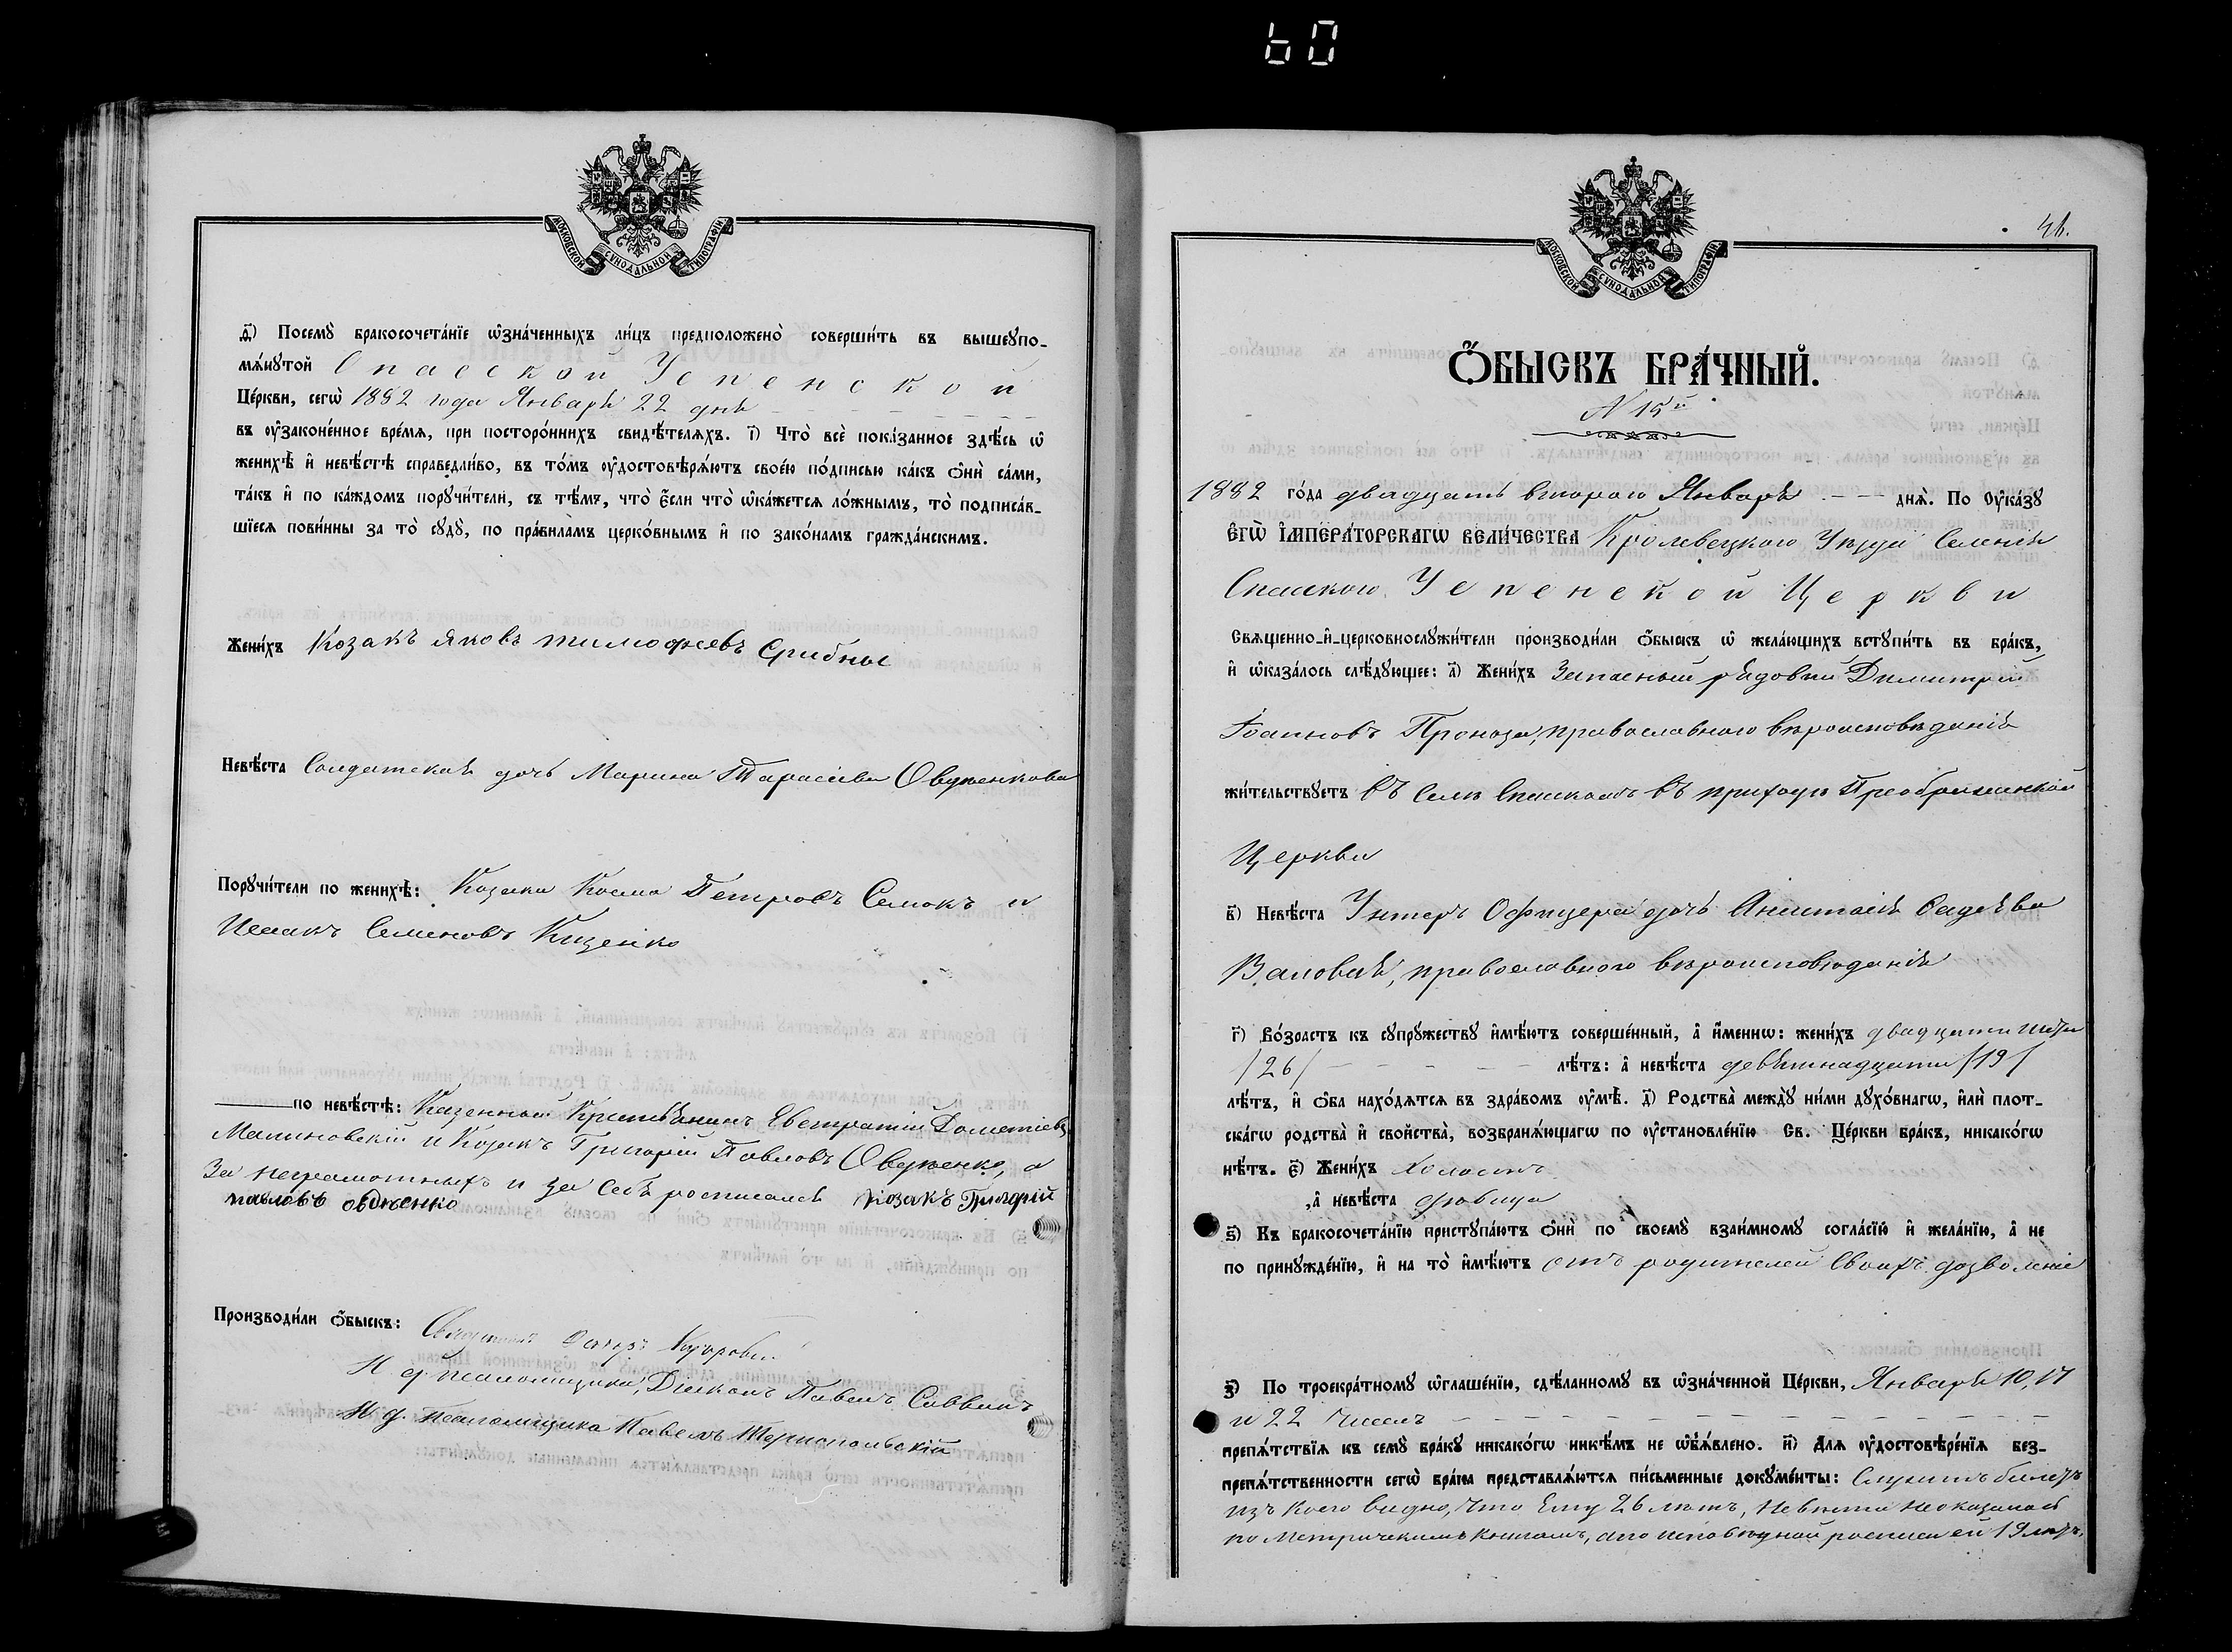 60
МОСКОВСКОЙ СѴНОДАЛЬНОЙ ТИПОГРАФІИ
д҃) Посемꙋ̀ бракосочета́нїе ѡ҆зна́ченныхъ ли́цъ предположено̀ соверши́ть въ вышеꙋпо-
мѧ́нꙋтой Спасской Успенской
Це́ркви, сегѡ̀ 1882 года Января 22 дня
въ ᲂу҆зако́ненное вре́мѧ, при посторо́ннихъ свидѣ́телѧхъ. і҃) Что̀ всѐ пока́занное здѣ́сь ѡ҆
женихѣ̀ и҆ невѣ́стѣ справедли́во, въ то́мъ ᲂу҆достовѣрѧ́ютъ свое́ю по́дписью ка́къ ѻ҆нѝ са́ми,
та́къ и҆ по ка́ждомъ порꙋчи́тели, съ тѣ́мъ, что̀ є҆́сли что̀ ѡ҆ка́жетсѧ ло́жнымъ, то̀ подписа́в-
шїесѧ пови́нны за то̀ сꙋдꙋ̀, по пра́виламъ церко́внымъ и҆ по зако́намъ гражда́нскимъ.
Жени́хъ Козакъ Яковъ тимофеевъ Срибный
Невѣ́ста Солдатская дочь Марина Тарасіева Овдѣенкова
Порꙋчи́тели по женихѣ̀: Козаки Косма Петровъ Самокъ и
Исаакъ Семеновъ Кизенко
по невѣ́стѣ: Казенный Крестьянинъ Евстратій Дометіевъ
Малиновскій и Козакъ Григорій Павловъ Овдѣенко, а
За неграмотныхъ и за Себя росписался козакъ Григорій
павловъ овдѣенко
Производи́ли ѻ҆́быскъ: Священникъ Петръ
И. д. псаломщика, Діаконъ Павелъ Саввинъ
И. д. Псаломщика Павелъ Тернопольскій
46.
МОСКОВСКОЙ СѴНОДАЛЬНОЙ ТИПОГРАФІИ
Ѻ҆́БЫСКЪ БРА́ЧНЫЙ.
N 15й
1882 го́да двадцать второго Января днѧ̀. По Оу҆ка́зꙋ
Є҆ГѠ̀ И҆МПЕРА́ТОРСКАГѠ ВЕЛИ́ЧЕСТВА Кролевецкого Уѣзда Селенія
Спаскаго Успенской Церкви
Свѧще́нно-и҆-церковнослꙋжи́тели производи́ли ѻ҆́быскъ ѡ҆ жела́ющихъ встꙋпи́ть въ бра́къ,
и҆ ѡ҆каза́лось слѣ́дꙋющее: а҃) Жени́хъ Запасный рядовый Димитрій
Іоанновъ Проноза, православного вѣроисповѣданія
жи́тельствꙋетъ въ Селѣ Спаскомъ въ приходѣ Преображенской
Церкви
в҃) Невѣ́ста Унтеръ Офицера дочь Анастасія Фадѣева
Валовая, православного вѣроисповѣданія
г҃) Во́зрастъ къ сꙋпрꙋ́жествꙋ и҆мѣ́ютъ соверше́нный, а҆ и҆́менно: жени́хъ двадцати шести
/26/ лѣ́тъ: а҆ невѣ́ста девятнадцати /19/
лѣ́тъ, и҆ ѻ҆́ба нахо́дѧтсѧ въ здра́вомъ ᲂу҆мѣ̀. д҃) Родства̀ междꙋ̀ ни́ми дꙋхо́внагѡ, и҆лѝ плот-
ска́гѡ родства̀ и҆ сво́йства̀, возбранѧ́ющагѡ по ᲂу҆становле́нїю Св. Це́ркви бра́къ, никако́гѡ
нѣ́тъ. є҃) Жени́хъ холостъ
, а҆ невѣ́ста дѣвица
ѕ҃) Къ бракосочета́нїю пристꙋпа́ютъ ѻ҆нѝ по своемꙋ̀ взаи́мномꙋ согла́сїю и҆ жела́нїю, а҆ не
по принꙋжде́нїю, и҆ на то̀ и҆мѣ́ютъ отъ родителей Своихъ дозволеніе
з҃) По троекра́тномꙋ ѡ҆глаше́нїю, сдѣ́ланномꙋ въ ѡ҆зна́ченной Це́ркви, Января 10, 17
и 22 чиселъ
препѧ́тствїѧ къ семꙋ̀ бра́кꙋ никако́гѡ никѣ́мъ не ѡ҆бъѧ́влено. и҃) Длѧ ᲂу҆достовѣре́нїѧ без-
препѧ́тственности сегѡ̀ бра́ка представлѧ́ютсѧ пи́сьменные докꙋме́нты: Служитъ билетъ
изъ коего видно, что Ему 26 лѣтъ, Невѣста не оказалась
по Метрическимъ книгамъ, а по исповѣдной росписи ей 19 лѣтъ.